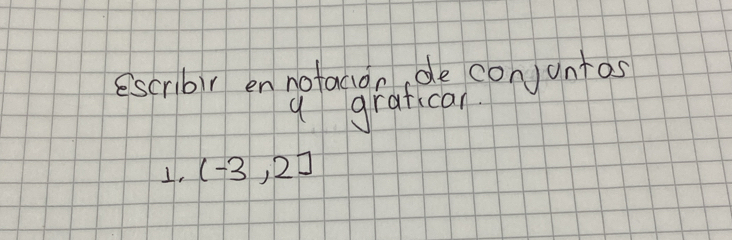 Escribir en notación de conjuntos
y graficar.
1. (-3, 2]